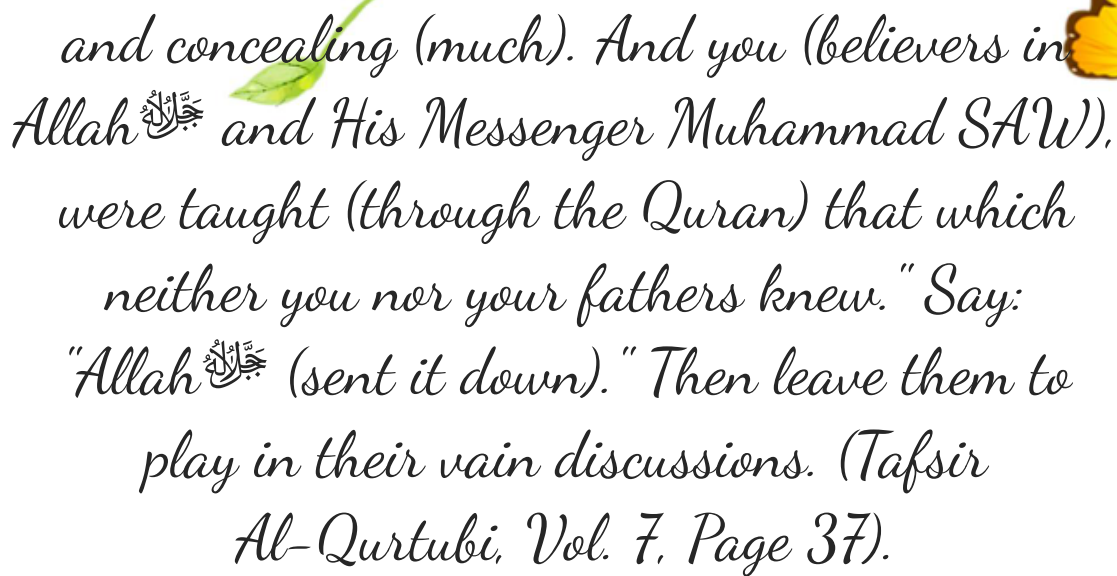 and concealing (much). And you (believers in
Allahﷻ and His Messenger Muhammad SAW)),
were taught (through the Quran) that which
neither you nor your fathers knew." Say:
"Allahﷻ (sent it down)." Then leave them to
play in their vain discussions. (Tafsir
Al-Qurtubi, Vol. 7, Page 37).